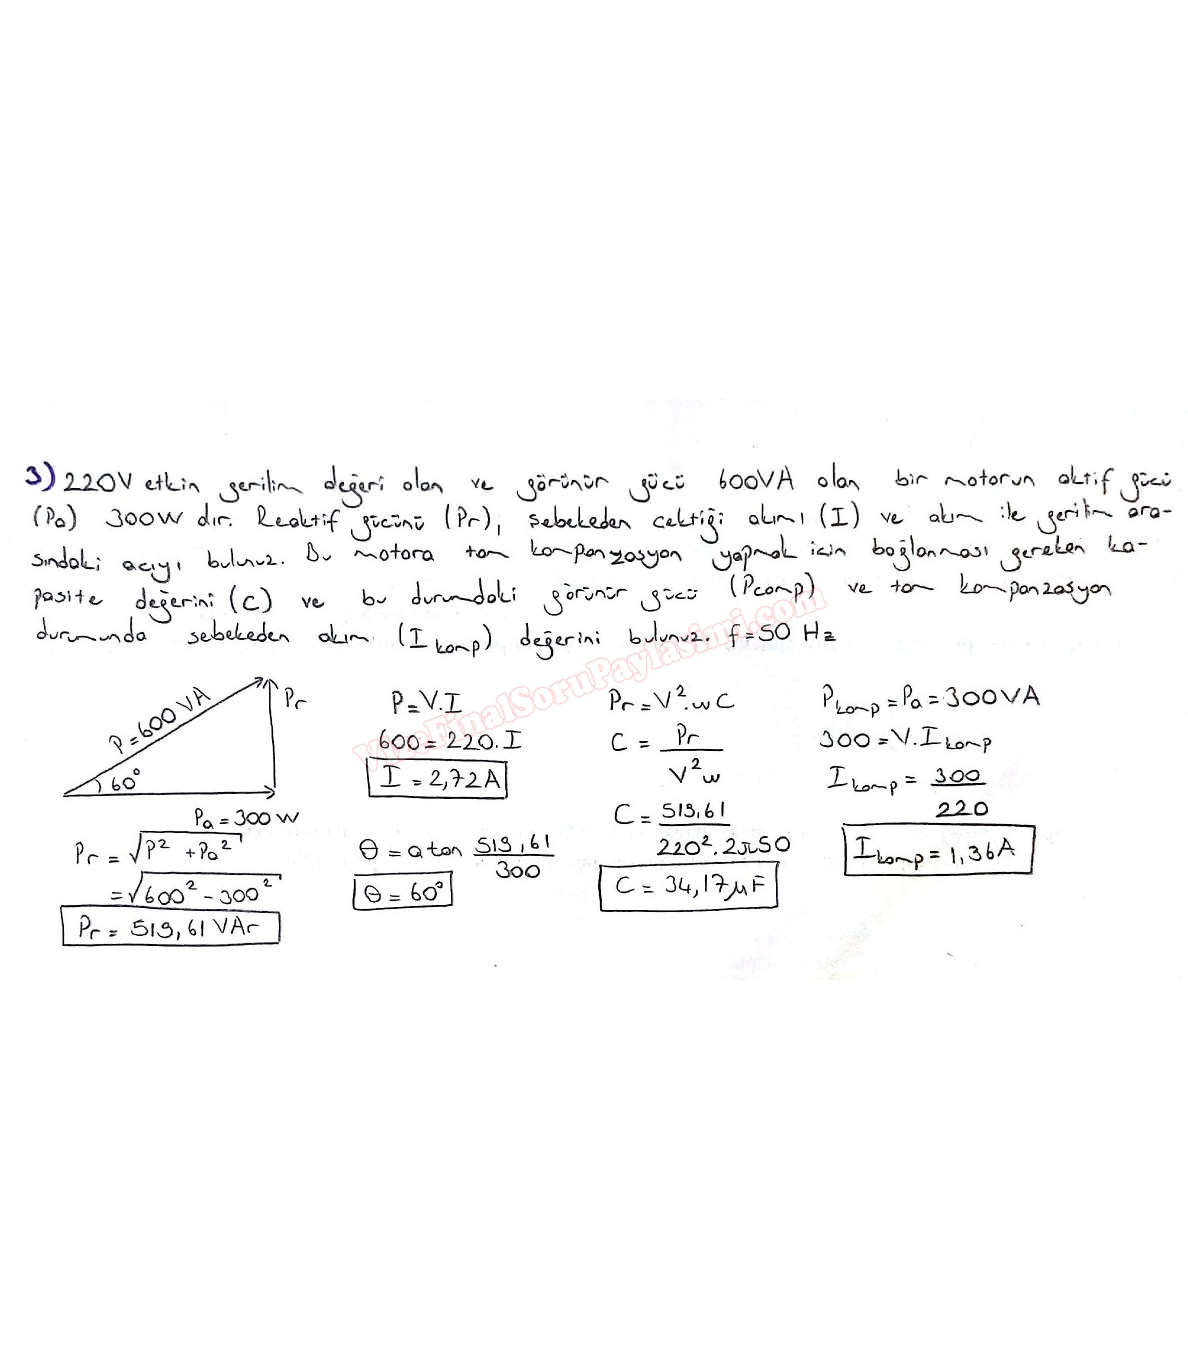 3) 220V etkin gerilim değeri olan ve görünür gücü 600VA olan bir motorun aktif gücü
(Pa) 300W dır. Reaktif gücünü (Pr), şebekeden çektiği akımı (I) ve akım ile gerilim ara-
sındaki açıyı bulunuz. Bu motora tam kompanzasyon yapmak için bağlanması gereken ka-
pasite değerini (C) ve bu durumdaki görünür gücü (Pcomp) ve tam kompanzasyon
durumunda şebekeden akım (I komp) değerini bulunuz. f=50 Hz
P=600VA
Pr
60°
Pa=300W
Pr = √P² + Pa²
= √600² - 300²
Pr = 519,61 VAr
P=V.I
600=220.I
I = 2,72A
θ = atan 519,61 / 300
θ = 60°
Pr = V².wC
C = Pr / V²w
C = 519,61 / 220².2π50
C = 34,17μF
Pkomp = Pa = 300VA
300 = V.Ikomp
Ikomp = 300 / 220
Ikomp = 1,36A
VizeFinalSoruPaylasimi.com